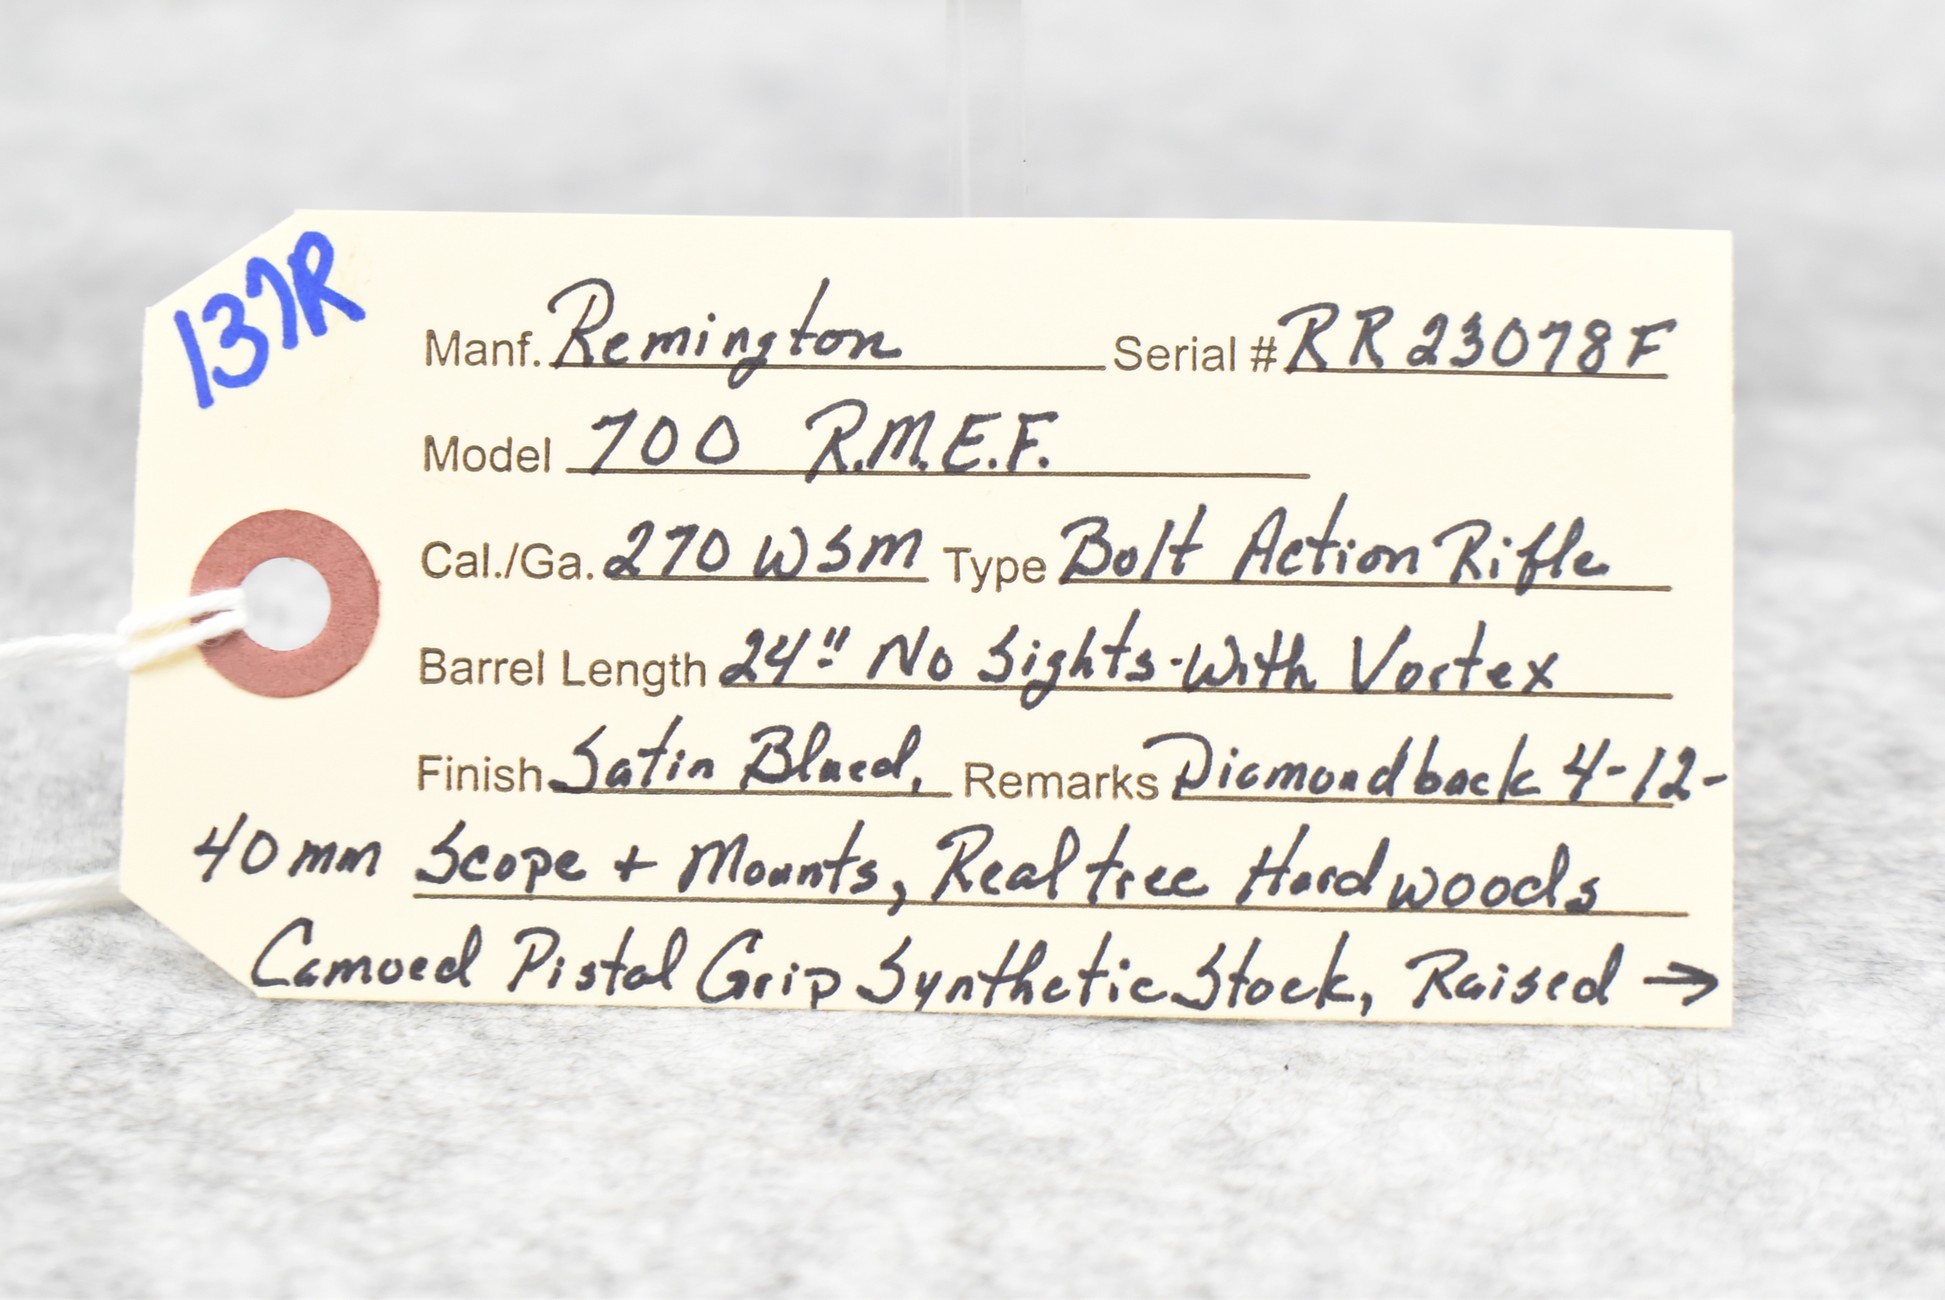 137R
Manf. Remington Serial # RR23078F
Model 700 R.M.E.F.
Cal./Ga. 270 WSM Type Bolt Action Rifle
Barrel Length 24" No Sights-With Vortex
Finish Satin Blued, Remarks Diamondback 4-12-
40mm Scope + Mounts, Realtree Hardwoods
Camoed Pistol Grip Synthetic Stock, Raised →